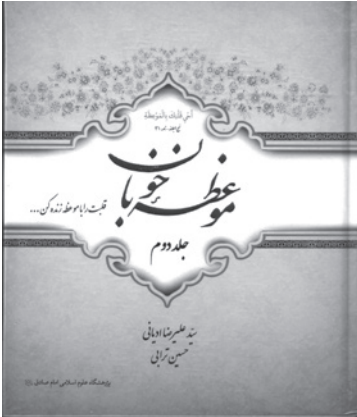 أحي قلبك بالموعظة
موعظه خوبان
قلبت را با موعظه زنده کن...
جلد دوم
سید علیرضا ادیانی
حسین ترابی
پژوهشگاه علوم اسلامی امام صادق